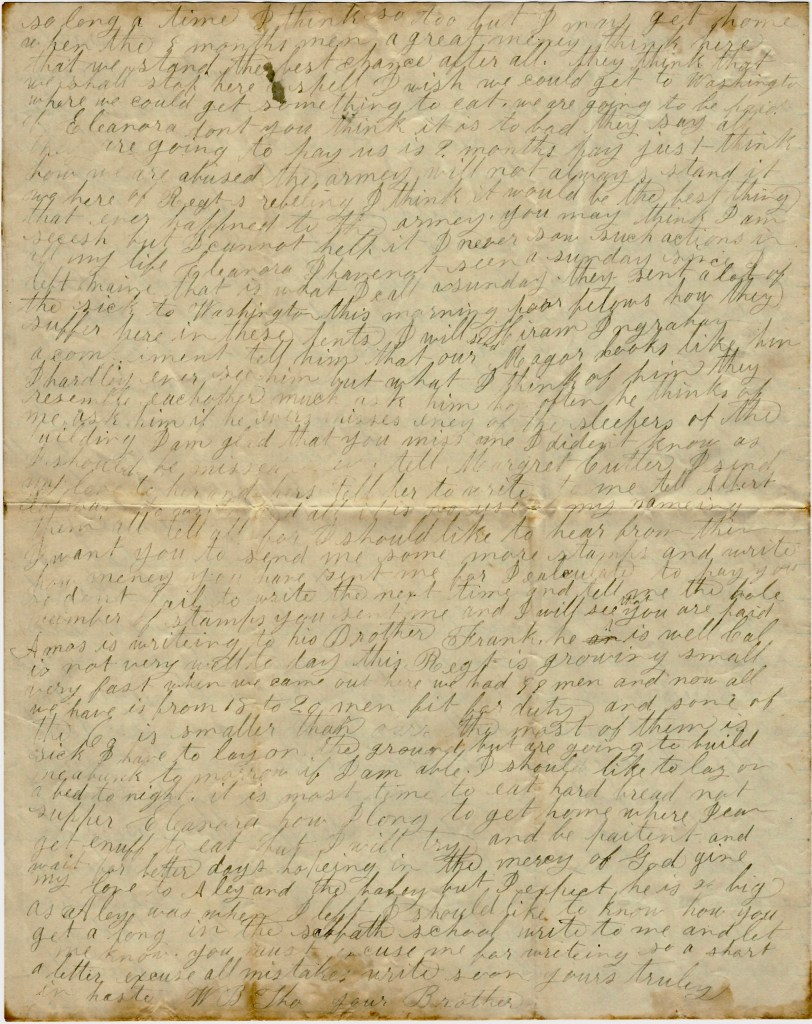 so long a time I think so too but I may get home
when the 9 months men a great meney think here
that we stand the best chance after all. they think that
we shall stop here a spell I wish we could get to Washington
where we could get something to eat. we are going to be paid
Eleanora dont you think it is to bad they say all
are going to pay us is 2 months pay just think
how we are abused the armey will not always stand it
we here of Regt s rebeling I think it would be the best thing
that ever happned to the armey. you may think I am
secesh but I cannot help it I never saw such actions in
all my life Eleanora I havengt seen a sunday since I
left maine that is what I call a sunday they sent a lot of
the sick to Washington this morning poor felows how they
suffer here in these tents I will Hiram Ingraham
a tell him that our Magor looks like him
I hardley ever see him but what I think of him they
resemble eachother much ask him how often he thinks of
me ask him if he ever misses eney of the sleepers of the
I am glad that you miss me I dident know as
I should be missed tell Margret Cutler I send
my love to her and hers tell her to write to me tell
my nameing
them all tell all for I should like to hear from them
I want you to send me some more stamps and write
how money you have sent me for I calculate to pay you
dont fail to write the next time and tell me the hole
number of stamps you sent me and I will see that you are paid
Amos is writeing to his Brother Frank. he is well Cal
is not very well to day this Regt is growing small
very fast when we came out here we had 98 men and now all
we have is from 15 to 20 men fit for duty and some of
the Co is smaller than ours the most of them is
sick I have to lay on the ground but are going to build
me a bunk to morrow if I am able. I should like to lay on
a bed to night. it is most time to eat hard bread not
supper Eleanora how I long to get home where I can
get enuff to eat but I will try and be paitent and
wait for better days hopeing in the mercy of God give
my love to Aley and the babey but I expect he is as big
as aley was when I left I should like to know how you
get a long in the sabbath school write to me and let
me know. you must excuse me for writeing so a short
a letter excuse all mistakes write soon yours truley
in haste W B Tho your Brother